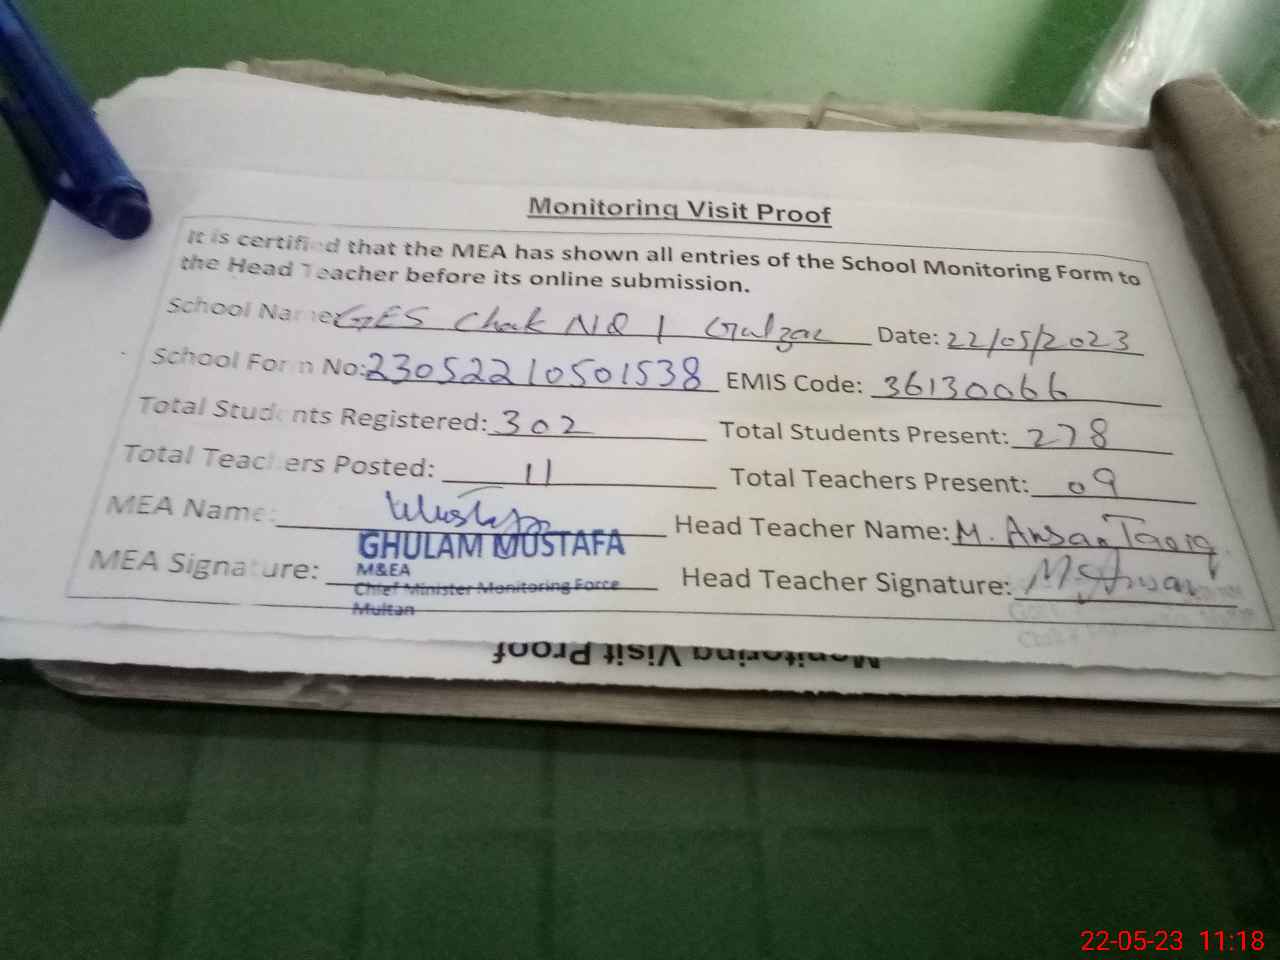 Monitoring Visit Proof
It is certified that the MEA has shown all entries of the School Monitoring Form to
the Head Teacher before its online submission.
School Name: GES Chak No 1 Gulzar Date: 22/05/2023
School Form No: 230522210501538 EMIS Code: 36130066
Total Students Registered: 302 Total Students Present: 278
Total Teachers Posted: 11 Total Teachers Present: 09
MEA Name: Mustafa Head Teacher Name: M. Ahsan Tariq
GHULAM MUSTAFA
M&EA
MEA Signature: Head Teacher Signature:
Chief Minister Monitoring Force
Multan
Monitoring Visit Proof
22-05-23 11:18